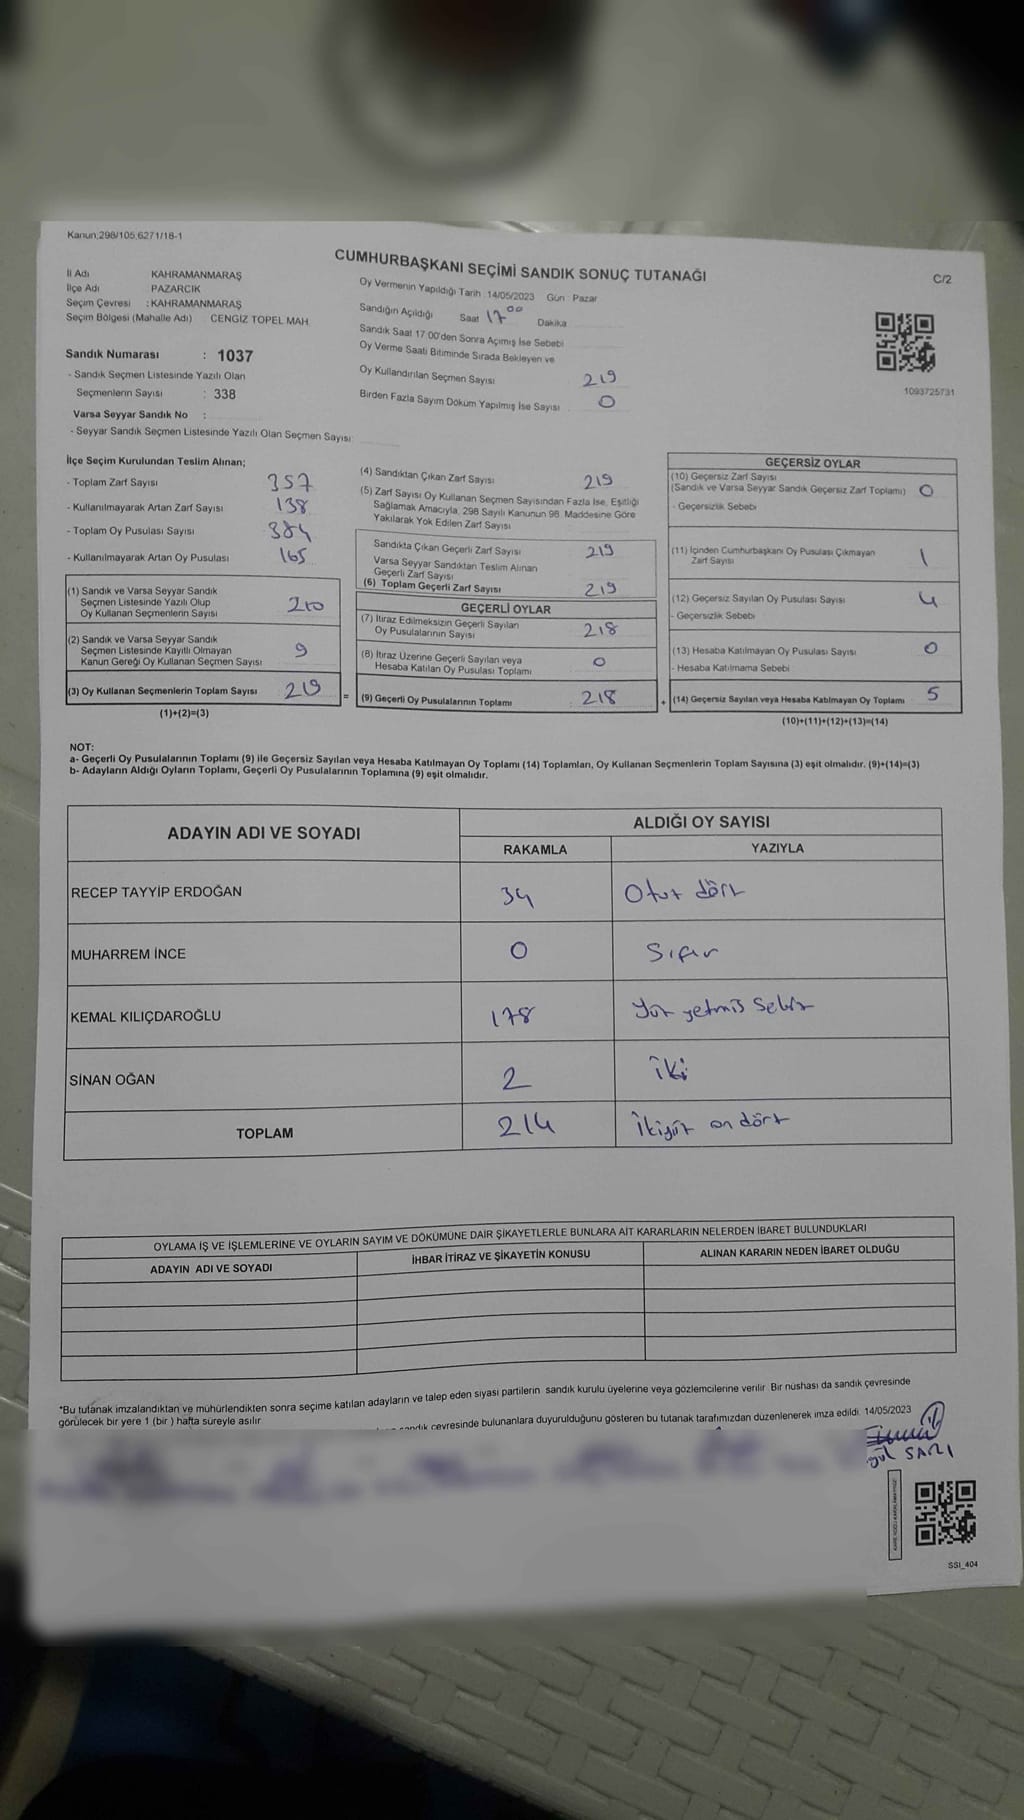 Kanun;298/105,6271/18-1
CUMHURBAŞKANI SEÇİMİ SANDIK SONUÇ TUTANAĞI
C/2
İl Adı KAHRAMANMARAŞ
İlçe Adı PAZARCIK
Seçim Çevresi : KAHRAMANMARAŞ
Seçim Bölgesi (Mahalle Adı) CENGİZ TOPEL MAH.
Sandık Numarası : 1037
- Sandık Seçmen Listesinde Yazılı Olan
Seçmenlerin Sayısı : 338
Varsa Seyyar Sandık No :
- Seyyar Sandık Seçmen Listesinde Yazılı Olan Seçmen Sayısı:
Oy Vermenin Yapıldığı Tarih : 14/05/2023 Gün : Pazar
Sandığın Açıldığı Saat 17 00 Dakika
Sandık Saat 17:00'den Sonra Açımış İse Sebebi
Oy Verme Saati Bitiminde Sırada Bekleyen ve
Oy Kullandırılan Seçmen Sayısı 219
Birden Fazla Sayım Döküm Yapılmış İse Sayısı 0
1093725731
İlçe Seçim Kurulundan Teslim Alınan;
- Toplam Zarf Sayısı 357
- Kullanılmayarak Artan Zarf Sayısı 138
- Toplam Oy Pusulası Sayısı 384
- Kullanılmayarak Artan Oy Pusulası 165
(1) Sandık ve Varsa Seyyar Sandık
Seçmen Listesinde Yazılı Olup
Oy Kullanan Seçmenlerin Sayısı 210
(2) Sandık ve Varsa Seyyar Sandık
Seçmen Listesinde Kayıtlı Olmayan
Kanun Gereği Oy Kullanan Seçmen Sayısı 9
(3) Oy Kullanan Seçmenlerin Toplam Sayısı 219
(1)+(2)=(3)
=
(4) Sandıktan Çıkan Zarf Sayısı 219
(5) Zarf Sayısı Oy Kullanan Seçmen Sayısından Fazla İse, Eşitliği
Sağlamak Amacıyla, 298 Sayılı Kanunun 98. Maddesine Göre
Yakılarak Yok Edilen Zarf Sayısı
Sandıkta Çıkan Geçerli Zarf Sayısı 219
Varsa Seyyar Sandıktan Teslim Alınan
Geçerli Zarf Sayısı
(6) Toplam Geçerli Zarf Sayısı 219
GEÇERLİ OYLAR
(7) İtiraz Edilmeksizin Geçerli Sayılan
Oy Pusulalarının Sayısı 218
(8) İtiraz Üzerine Geçerli Sayılan veya
Hesaba Katılan Oy Pusulası Toplamı 0
(9) Geçerli Oy Pusulalarının Toplamı 218
+
GEÇERSİZ OYLAR
(10) Geçersiz Zarf Sayısı
(Sandık ve Varsa Seyyar Sandık Geçersiz Zarf Toplamı) 0
- Geçersizlik Sebebi
(11) İçinden Cumhurbaşkanı Oy Pusulası Çıkmayan
Zarf Sayısı 1
(12) Geçersiz Sayılan Oy Pusulası Sayısı 4
- Geçersizlik Sebebi
(13) Hesaba Katılmayan Oy Pusulası Sayısı 0
- Hesaba Katılmama Sebebi
(14) Geçersiz Sayılan veya Hesaba Katılmayan Oy Toplamı 5
(10)+(11)+(12)+(13)=(14)
NOT:
a- Geçerli Oy Pusulalarının Toplamı (9) ile Geçersiz Sayılan veya Hesaba Katılmayan Oy Toplamı (14) Toplamları, Oy Kullanan Seçmenlerin Toplam Sayısına (3) eşit olmalıdır. (9)+(14)=(3)
b- Adayların Aldığı Oyların Toplamı, Geçerli Oy Pusulalarının Toplamına (9) eşit olmalıdır.
ADAYIN ADI VE SOYADI
ALDIĞI OY SAYISI
RAKAMLA YAZIYLA
RECEP TAYYİP ERDOĞAN 34 Otuz dört
MUHARREM İNCE 0 Sıfır
KEMAL KILIÇDAROĞLU 178 Yüz yetmiş Sekiz
SİNAN OĞAN 2 iki
TOPLAM 214 İkiyüz on dört
OYLAMA İŞ VE İŞLEMLERİNE VE OYLARIN SAYIM VE DÖKÜMÜNE DAİR ŞİKAYETLERLE BUNLARA AİT KARARLARIN NELERDEN İBARET BULUNDUKLARI
ADAYIN ADI VE SOYADI İHBAR İTİRAZ VE ŞİKAYETİN KONUSU ALINAN KARARIN NEDEN İBARET OLDUĞU
*Bu tutanak imzalandıktan ve mühürlendikten sonra seçime katılan adayların ve talep eden siyasi partilerin sandık kurulu üyelerine veya gözlemcilerine verilir. Bir nüshası da sandık çevresinde
görülecek bir yere 1 (bir ) hafta süreyle asılır.
sandık çevresinde bulunanlara duyurulduğunu gösteren bu tutanak tarafımızdan düzenlenerek imza edildi. 14/05/2023
gül SARI
SSI_404